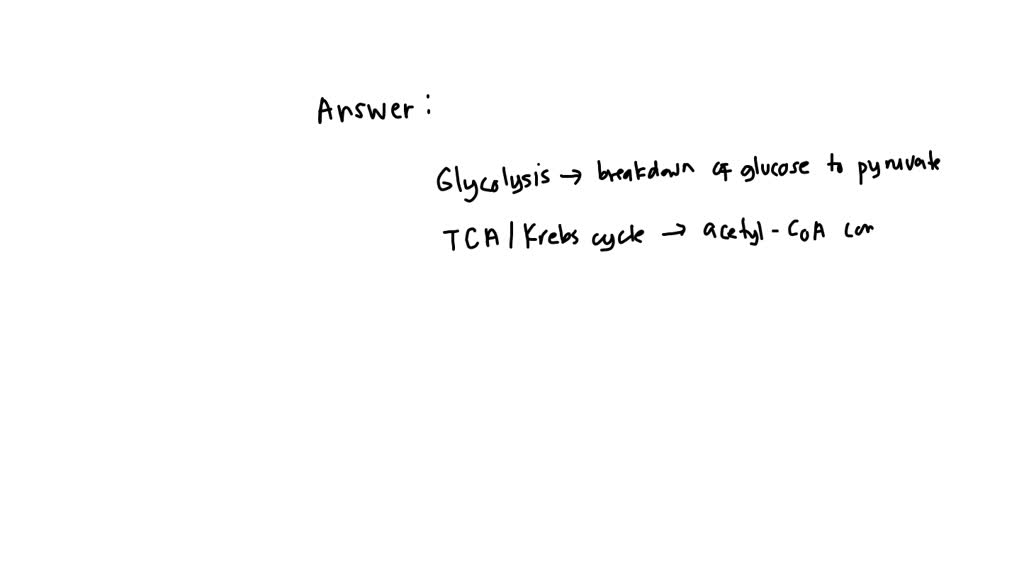 Answer:
Glycolysis → breakdown of glucose to pyruvate
TCA / Krebs cycle → acetyl-CoA con